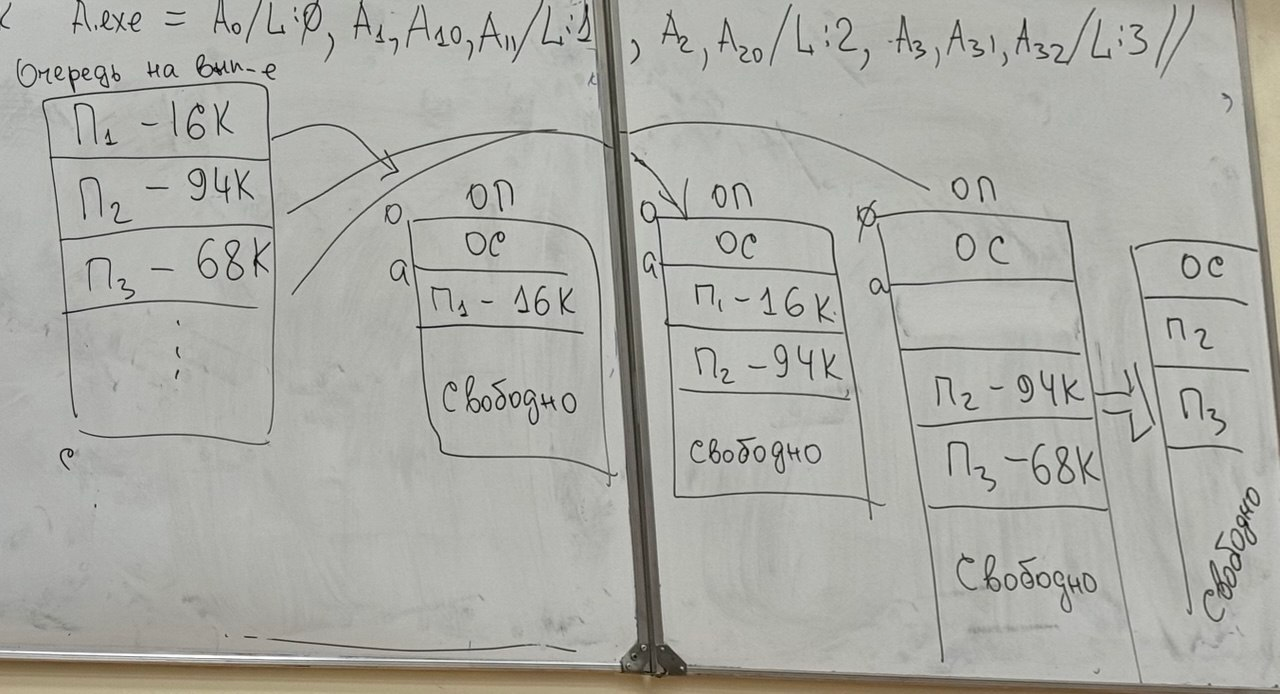 A.exe = A0/L:Ø, A1, A10, A11/L:1, A2, A20/L:2, A3, A31, A32/L:3//
Очередь на вып-е
П1 - 16К
П2 - 94К
П3 - 68К
ОП
0
ОС
а
П1 - 16К
Свободно
ОП
0
ОС
а
П1 - 16К
П2 - 94К
свободно
ОП
Ø
ОС
а
П2 - 94К
П3 - 68К
Свободно
ОС
П2
П3
Свободно